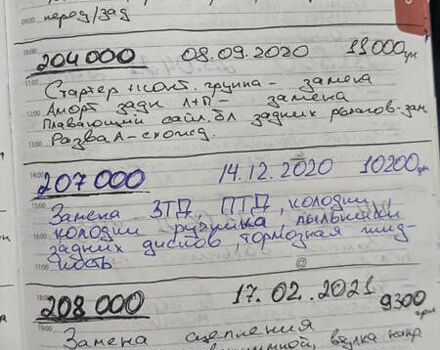 09:00 перед/зад
10:00
204 000 08.09.2020 11000грн
Стартер + конт. группа - замена
12:00 Аморт задн Л+П - замена
Плавающий сайл. бл задних рычагов - зам
13:00 Развал - схожд.
14:00
207 000 14.12.2020 10200грн
15:00 Замена ЗТД, ПТД, колодки
колодки ручника пыльники
задних дисков, тормозная жид-
17:00 кость @
208 000 17.02.2021 9300грн
19:00 Замена сцепления
втулка